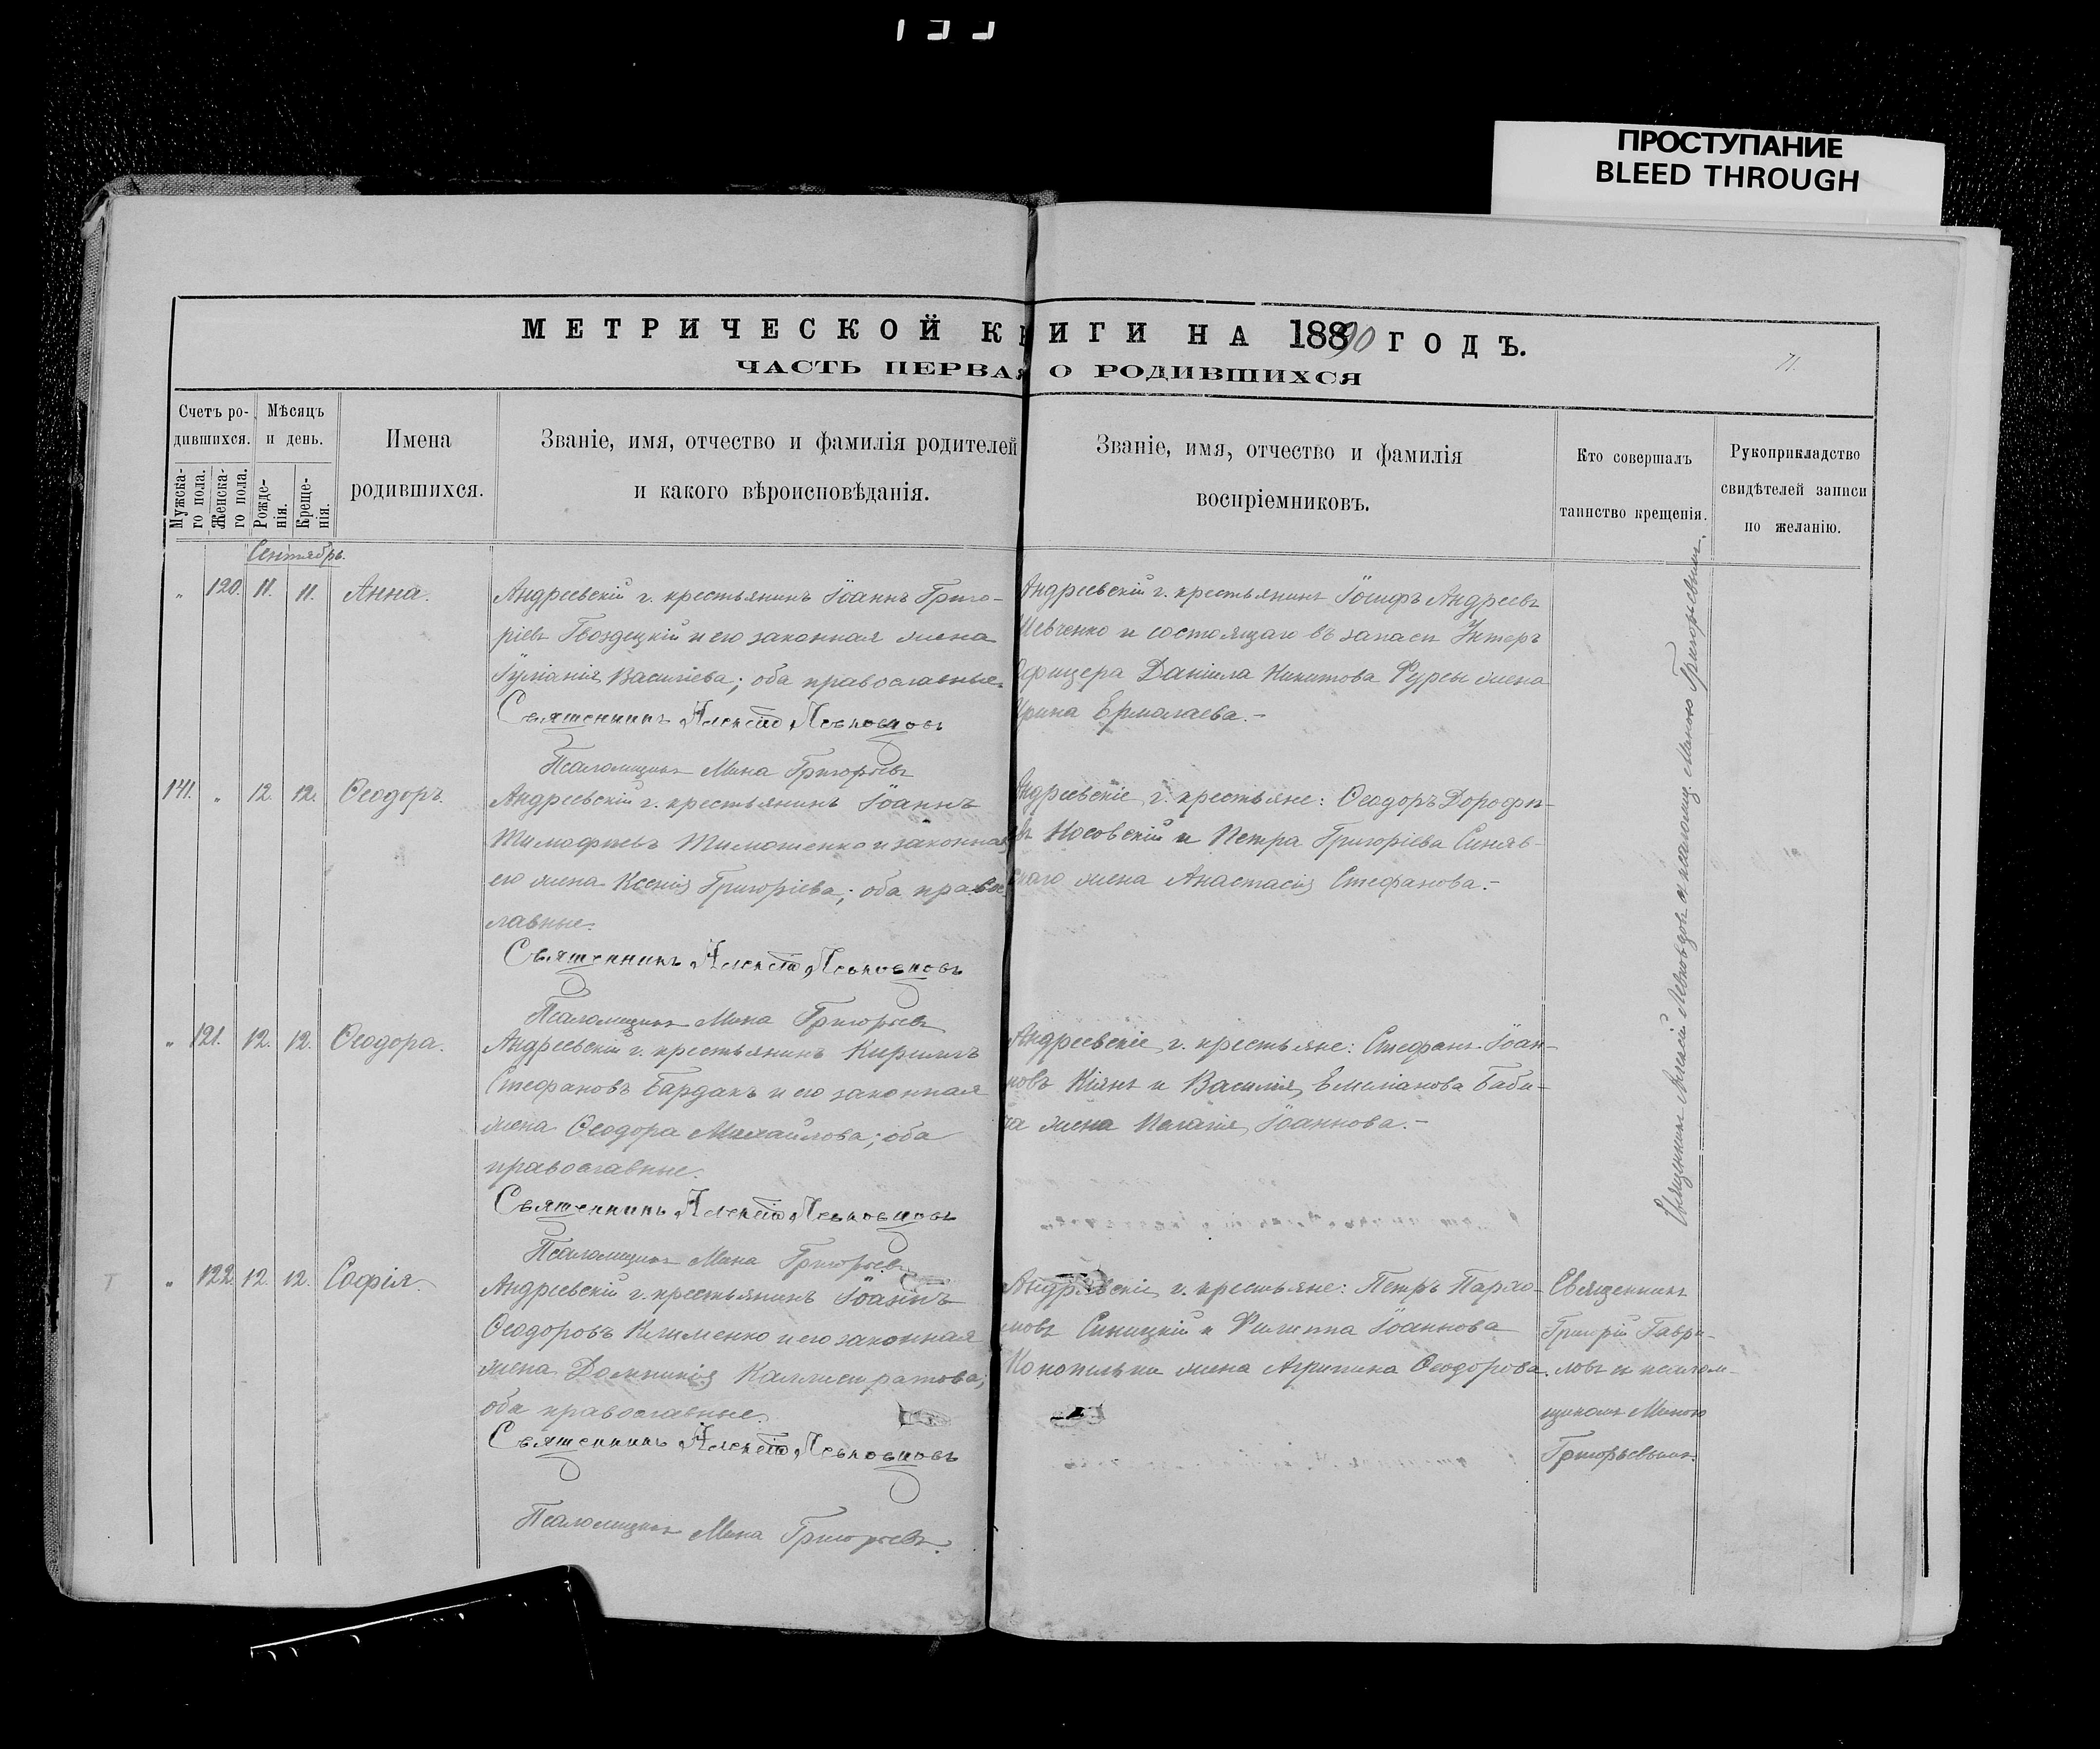 ПРОСТУПАНИЕ
BLEED THROUGH
МЕТРИЧЕСКОЙ КНИГИ НА 1890 ГОДЪ.
ЧАСТЬ ПЕРВАЯ О РОДИВШИХСЯ
71.
Счетъ ро-
дившихся.
Мужска-
го пола.
Женска-
го пола.
Мѣсяцъ
и день.
Рожде-
нія.
Креще-
нія.
Имена
родившихся.
Званіе, имя, отчество и фамилія родителей
и какого вѣроисповѣданія.
Званіе, имя, отчество и фамилія
воспріемниковъ.
Кто совершалъ
таинство крещенія.
Рукоприкладство
свидѣтелей записи
по желанію.
Сентябрь.
" 120. 11. 11. Анна.
Андреевскій г. крестьянинъ Іоаннъ Григо-
ріевъ Гвоздецкій и его законная жена
Іуліанія Василіева; оба православные.
Священникъ Алексій Левковцовъ
Псаломщикъ Мина Григорьевъ
Андреевскій г. крестьянинъ Іосифъ Андреевъ
Шевченко и состоящаго въ запасѣ Унтеръ
Офицера Даніила Никитова Фурсы жена
Ирина Ермолаева.-
141. " 12. 12. Ѳеодоръ.
Андреевскій г. крестьянинъ Іоаннъ
Тимофѣевъ Тимошенко и законная
его жена Ксенія Григоріева; оба право-
лавные.
Священникъ Алексій Левковцовъ
Псаломщикъ Мина Григорьевъ
Андреевскіе г. крестьяне: Ѳеодоръ Дорофѣ-
евъ Косовскій и Петра Григоріева Синяв-
скаго жена Анастасія Стефанова.-
" 121. 12. 12. Ѳеодора.
Андреевскій г. крестьянинъ Кириллъ
Стефановъ Бардакъ и его законная
жена Ѳеодора Михайлова; оба
православные.
Священникъ Алексій Левковцовъ
Псаломщикъ Мина Григорьевъ
Андреевскіе г. крестьяне: Стефанъ Іоан-
новъ Кіянъ и Василія Емеліанова Баби-
ча жена Пелагія Іоаннова.-
Священникъ Алексій Левковцовъ съ псаломщ. Миною Григорьевымъ.
" 122. 12. 12. Софія.
Андреевскій г. крестьянинъ Іоаннъ
Ѳеодоровъ Клименко и его законная
жена Домникія Каллистратова;
оба православные.
Священникъ Алексій Левковцовъ
Псаломщикъ Мина Григорьевъ.
Андреевскіе г. крестьяне: Петръ Пархо-
мовъ Синицкій и Филиппа Іоаннова
Конопельки жена Агрипина Ѳеодорова.
Священникъ
Григорій Гаври-
ловъ съ псалом-
щикомъ Миною
Григорьевымъ.